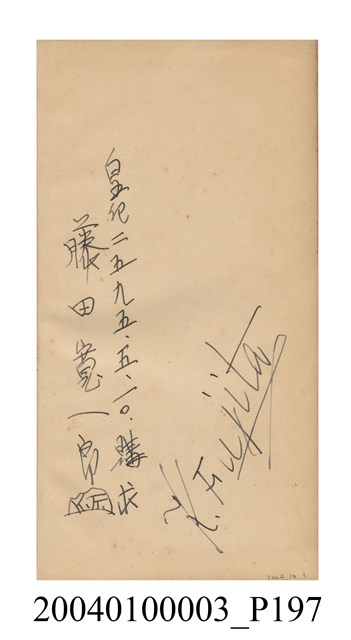 皇紀二五九五.五.一〇.購求
藤田寛一郎
K. Fujita
20040100003_P197